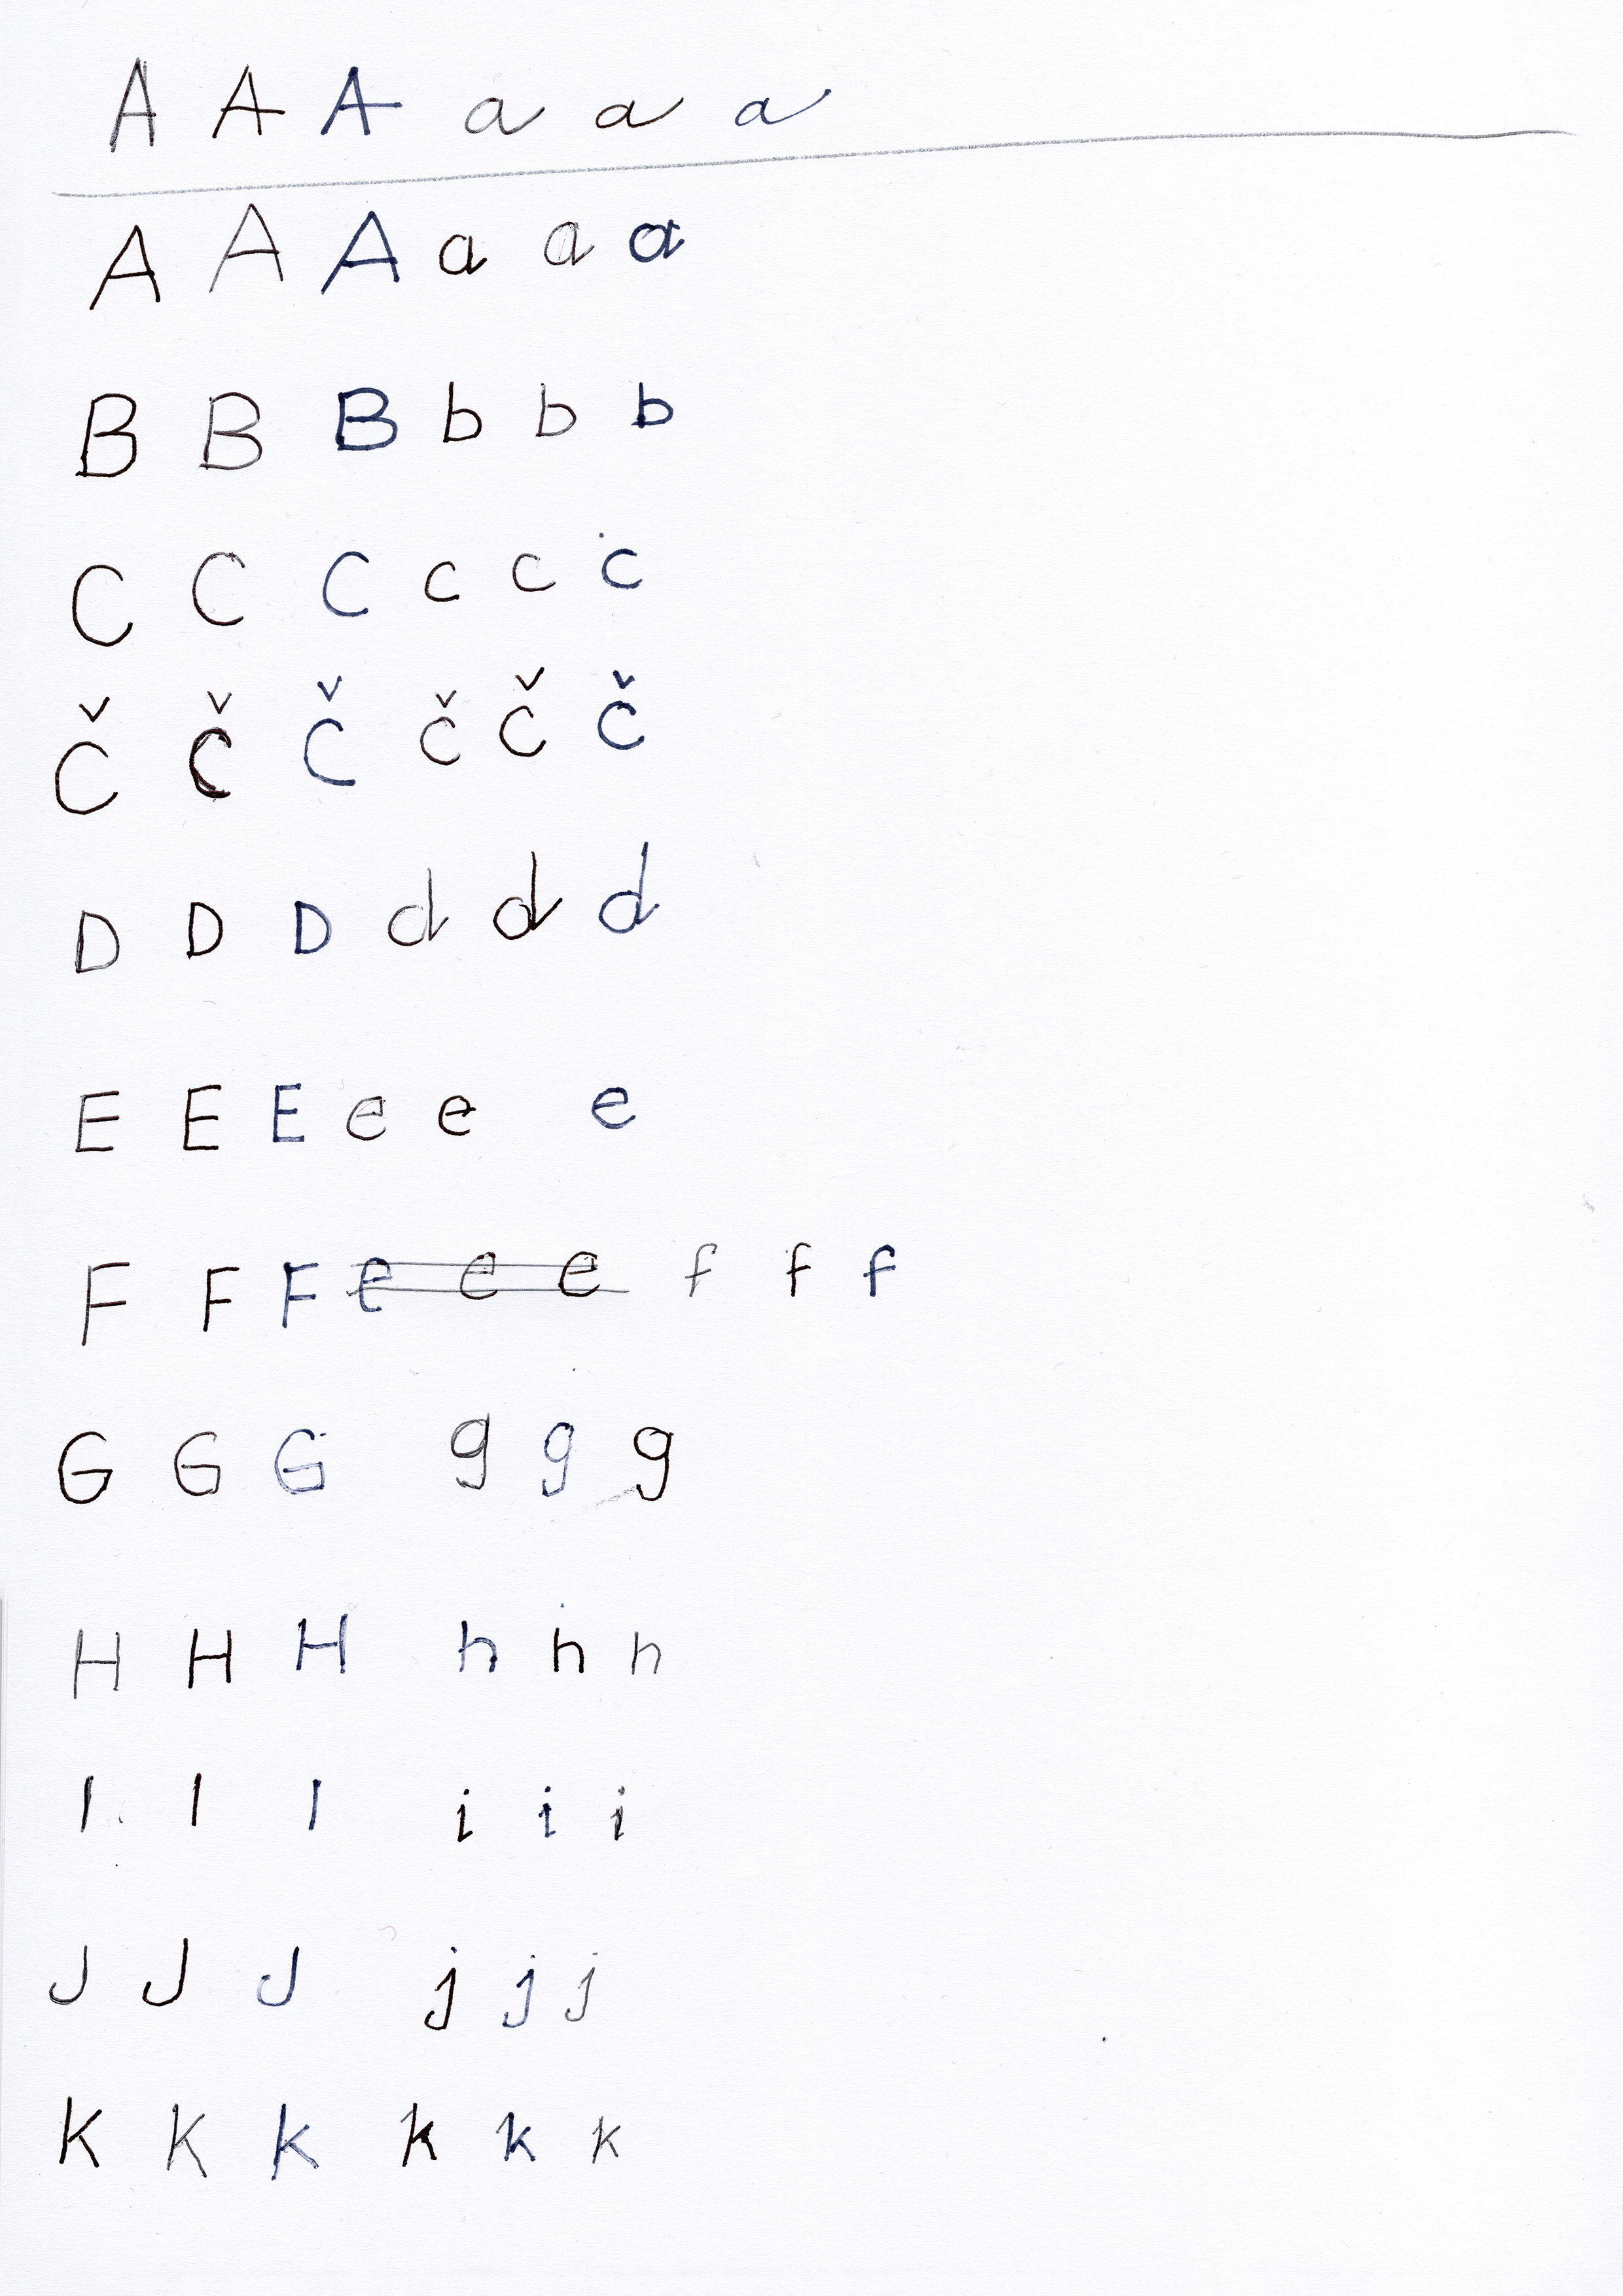 A A A a a a
A A A a a a
B B B b b b
C C C c c c
Č Č Č č č č
D D D d d d
E E E e e e
F F F e e e f f f
G G G g g g
H H H h h h
I I I i i i
J J J j j j
K K K k k k